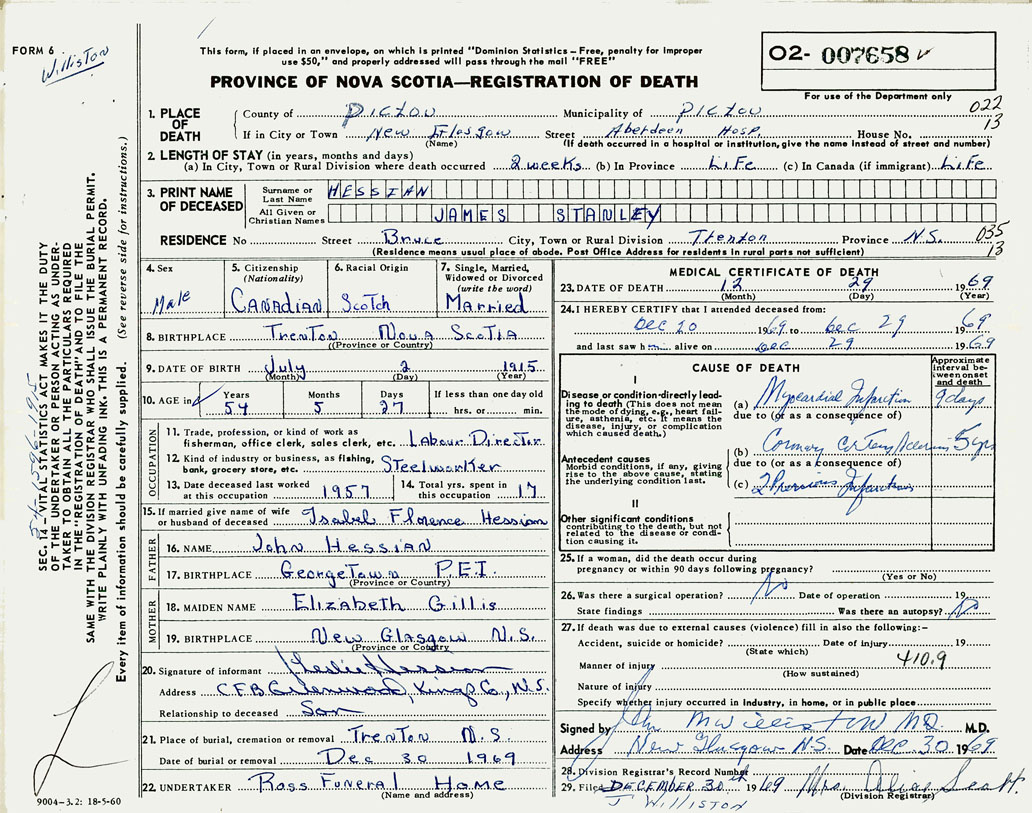 FORM 6
Williston
This form, if placed in an envelope, on which is printed "Dominion Statistics – Free, penalty for improper
use $50," and properly addressed will pass through the mail "FREE"
PROVINCE OF NOVA SCOTIA—REGISTRATION OF DEATH
02- 007658
For use of the Department only
022
13
1. PLACE OF DEATH
County of Pictou Municipality of Pictou
If in City or Town New Glasgow Street Aberdeen Hosp. House No.
(Name) (If death occurred in a hospital or institution, give the name instead of street and number)
2. LENGTH OF STAY (in years, months and days)
(a) In City, Town or Rural Division where death occurred 2 weeks (b) In Province Life (c) In Canada (if immigrant) Life
3. PRINT NAME OF DECEASED
Surname or Last Name HESSIAN
All Given or Christian Names JAMES STANLEY
RESIDENCE No Street Bruce City, Town or Rural Division Trenton Province N.S. 035
13
(Residence means usual place of abode. Post Office Address for residents in rural parts not sufficient)
4. Sex Male
5. Citizenship (Nationality) CANADIAN
6. Racial Origin Scotch
7. Single, Married, Widowed or Divorced (write the word) Married
8. BIRTHPLACE Trenton Nova Scotia
(Province or Country)
9. DATE OF BIRTH July 2 1915
(Month) (Day) (Year)
10. AGE in Years 54 Months 5 Days 27 If less than one day old hrs. or min.
OCCUPATION
11. Trade, profession, or kind of work as fisherman, office clerk, sales clerk, etc. Labour Director
12. Kind of industry or business, as fishing, bank, grocery store, etc. Steelworker
13. Date deceased last worked at this occupation 1957
14. Total yrs. spent in this occupation 17
15. If married give name of wife or husband of deceased Isabel Florence Hessian
FATHER
16. NAME John Hessian
17. BIRTHPLACE Georgetown P.E.I.
(Province or Country)
MOTHER
18. MAIDEN NAME Elizabeth Gillis
19. BIRTHPLACE New Glasgow N.S.
(Province or Country)
20. Signature of informant Leslie Hessian
Address CFB Greenwood, Kings Co., N.S.
Relationship to deceased Son
21. Place of burial, cremation or removal Trenton N.S.
Date of burial or removal Dec 30 1969
22. UNDERTAKER Ross Funeral Home
(Name and address)
9004–3.2: 18-5-60
MEDICAL CERTIFICATE OF DEATH
23. DATE OF DEATH 12 29 1969
(Month) (Day) (Year)
24. I HEREBY CERTIFY that I attended deceased from:
Dec 20 1969 to Dec 29 1969
and last saw him alive on Dec 29 1969
CAUSE OF DEATH
Approximate interval between onset and death
I
Disease or condition directly leading to death (This does not mean the mode of dying, e.g., heart failure, asthenia, etc. It means the disease, injury, or complication which caused death.)
(a) Myocardial Infarction 9 days
due to (or as a consequence of)
Antecedent causes
Morbid conditions, if any, giving rise to the above cause, stating the underlying condition last.
(b) Coronary 5 yrs
due to (or as a consequence of)
(c) 2 Previous Infarctions
II
Other significant conditions
contributing to the death, but not related to the disease or condition causing it.
25. If a woman, did the death occur during
pregnancy or within 90 days following pregnancy?
(Yes or No)
26. Was there a surgical operation? No Date of operation 19
State findings Was there an autopsy? No
27. If death was due to external causes (violence) fill in also the following:–
Accident, suicide or homicide? Date of injury 19
(State which)
Manner of injury 410.9
(How sustained)
Nature of injury
Specify whether injury occurred in industry, in home, or in public place
Signed by M Williston M.D. M.D.
Address New Glasgow N.S. Date Dec 30 1969
28. Division Registrar's Record Number
29. Filed DECEMBER 30 1969 Mrs. Scott
(Division Registrar)
J WILLISTON
SEC. 14—VITAL STATISTICS ACT MAKES IT THE DUTY
OF THE UNDERTAKER OR PERSON ACTING AS UNDER-
TAKER TO OBTAIN ALL THE PARTICULARS REQUIRED
IN THE "REGISTRATION OF DEATH" AND TO FILE THE
SAME WITH THE DIVISION REGISTRAR WHO SHALL ISSUE THE BURIAL PERMIT.
WRITE PLAINLY WITH UNFADING INK. THIS IS A PERMANENT RECORD.
Every item of information should be carefully supplied. (See reverse side for instructions.)